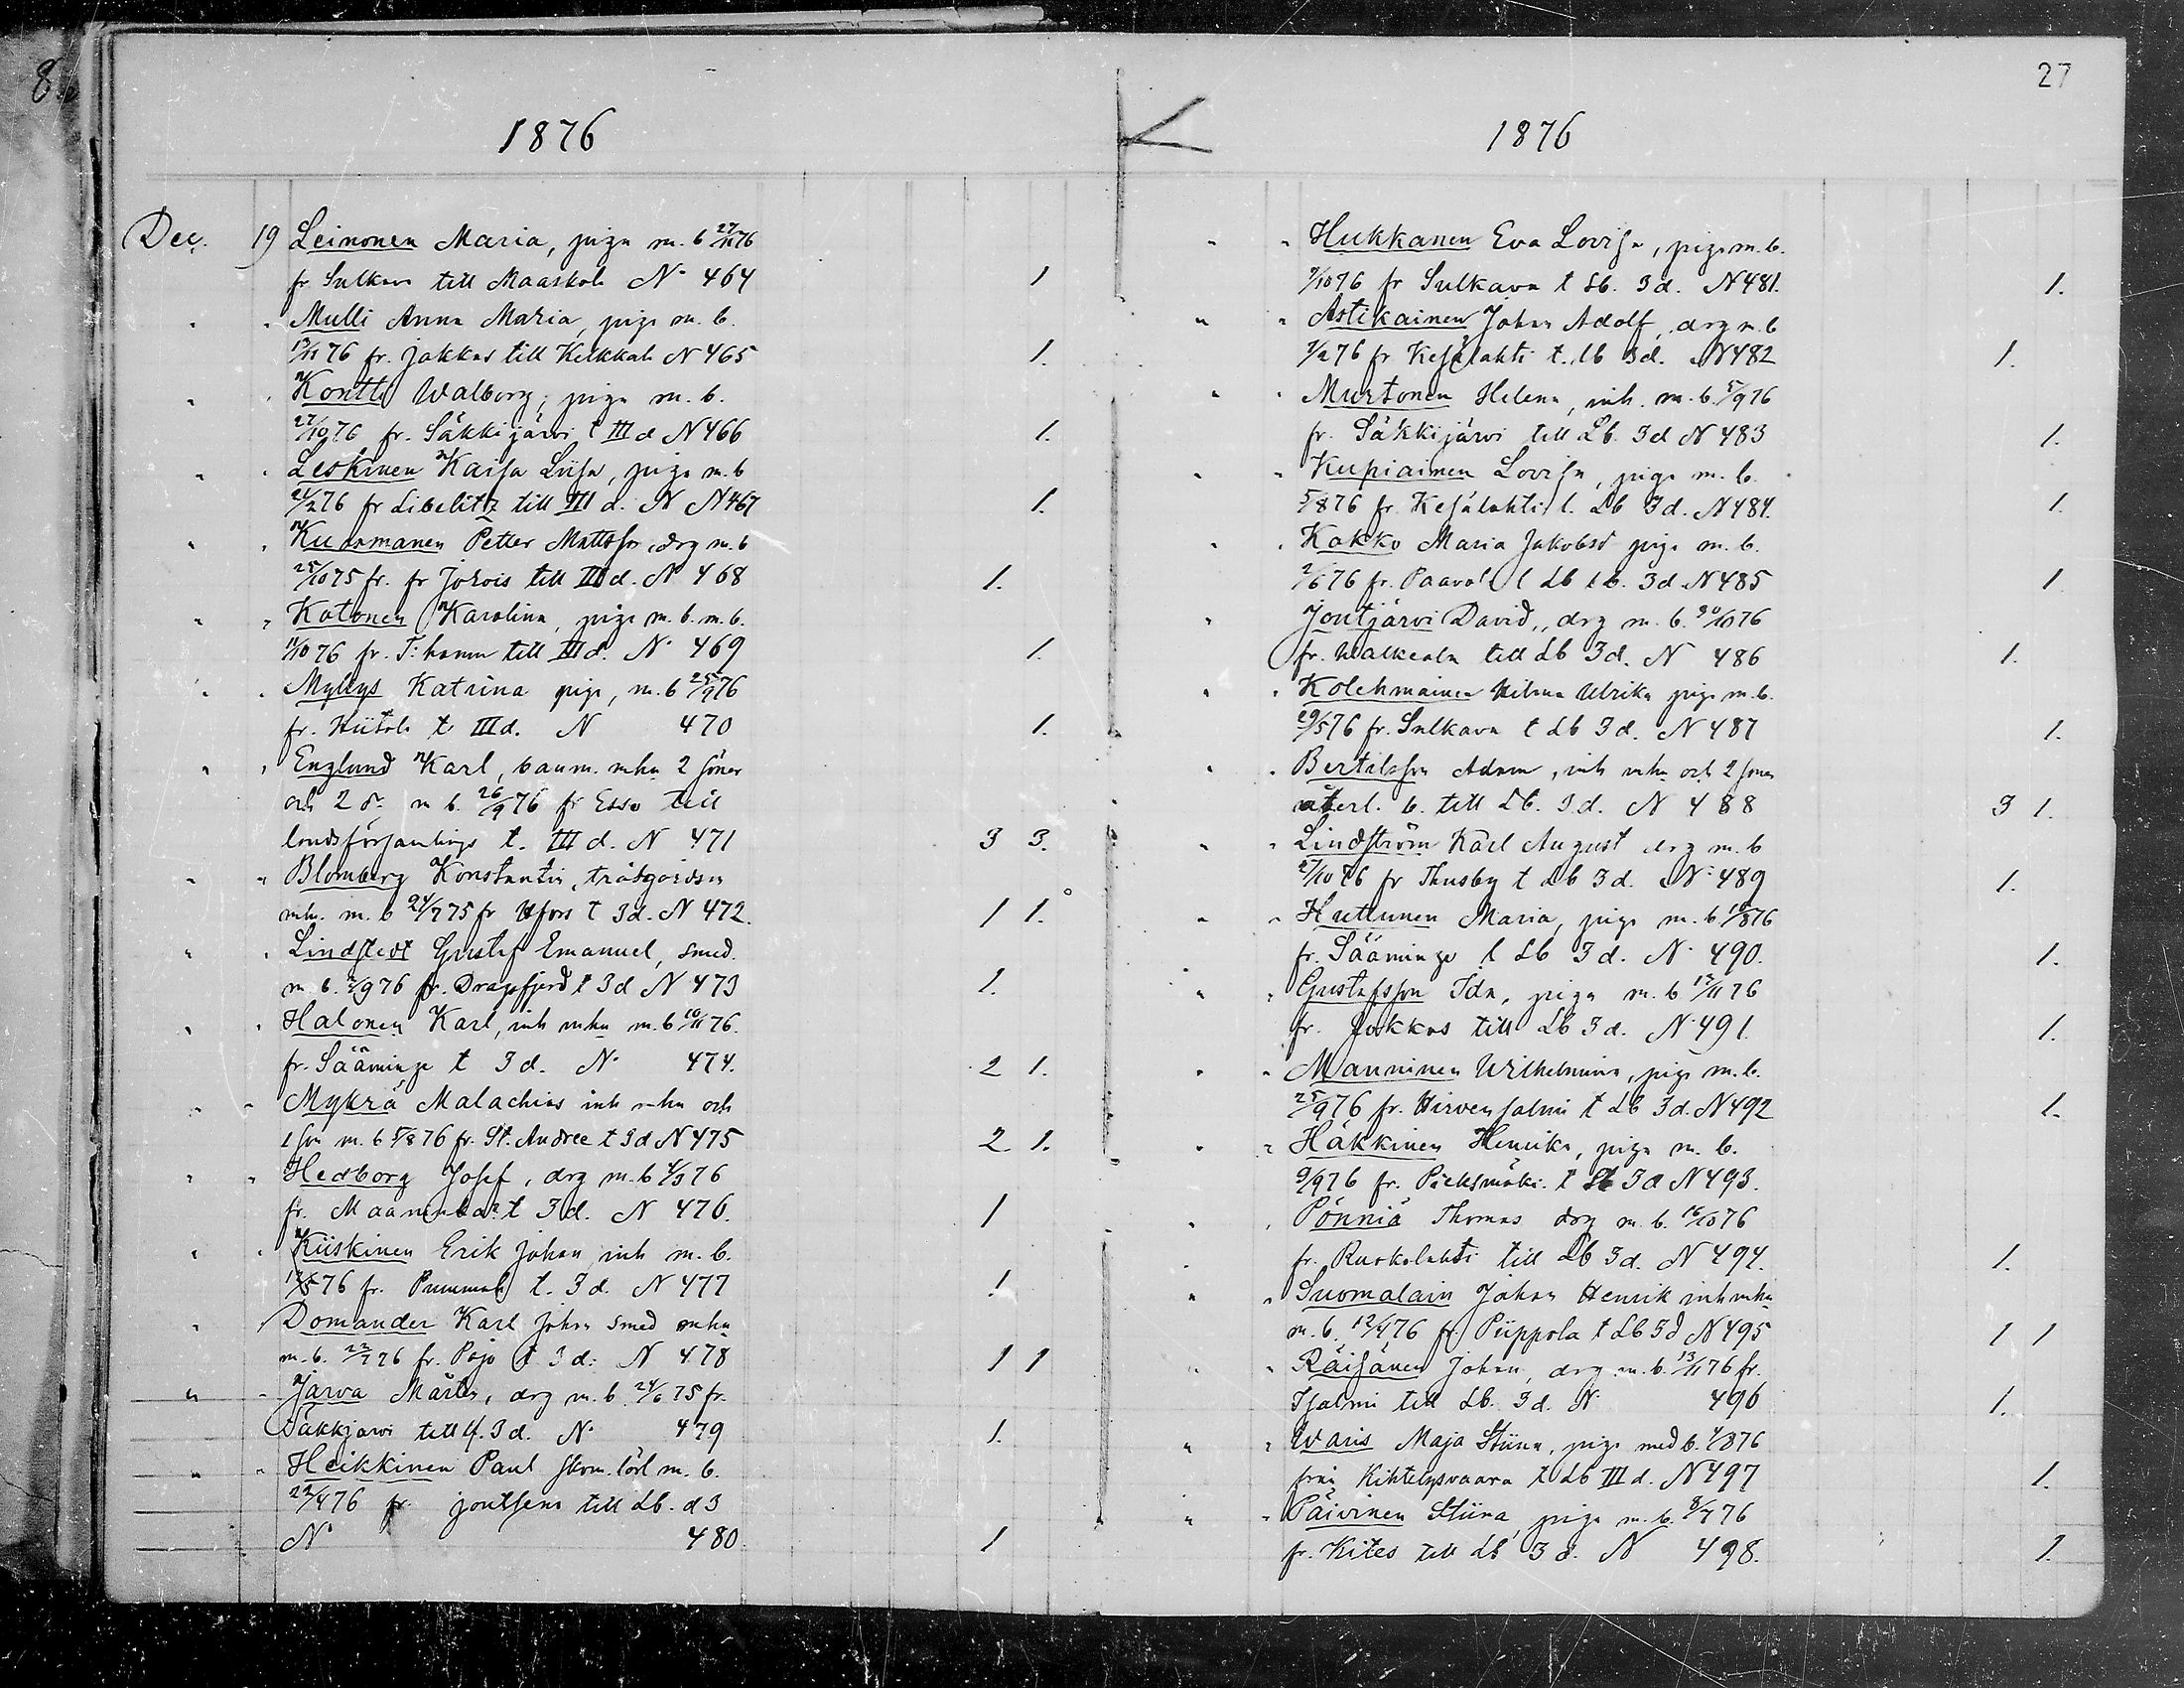 8
27
1876
Dec. 19 Leinonen Maria, piga m. b 27/11 76
fr Sulkava till Maaskola No 464 1
" " Mulli Anna Maria, piga m. b.
13/11 76 fr. Jakkas till Kelkkala N 465 1.
" " Kontti Walborg, piga m. b.
27/10 76 fr. Säkkijärvi t III d N 466 1.
" " Leskinen Kaisa Liisa, piga m. b
21/2 76 fr Libelitz till III d. N N 467 1.
" " Kuosmanen Petter Mattsson drg m. b
25/10 75 fr. fr Jorois till III d. N 468 1.
" " Kotonen Karolina, piga m. b. m. b.
11/10 76 fr. T:hamn till III d. No 469 1.
" " Myllys Katrina piga, m. b 25/9 76
fr. Hiitola t. III d. N 470 1.
" " Englund Karl, banm. mhu 2 söner
och 2 d. m b. 26/9 76 fr Esso till
landsförsamlings t. III d. N 471 3 3.
" " Blomberg Konstantin, trädgårdsm
mhu. m. b 24/7 75 fr Hfors t 3 d. N 472. 1 1.
" " Lindstedt Gustaf Emanuel, smed.
m. b. 2/9 76 fr. Dragsfjerd t 3 d N 473 1.
" " Halonen Karl, inh mhu m. b 10/11 76.
fr. Sääminge t 3 d. No 474. 2 1.
" " Mykrä Malachias inh mhu och
1 son m. b 5/8 76 fr. St. Andree t 3 d N 475 2 1.
" " Hedborg Josef, drg m. b 4/3 76
fr. Maaninka t 3 d. N 476. 1
" " Kiiskinen Erik Johan inh m. b.
12/5 76 fr. Pummala t. 3 d. N 477 1
" " Domander Karl Johan smed mhu
m. b. 22/7 76 fr. Pojo t 3 d: N 478 1 1
" " Jarva Mårten, drg m. b. 24/6 75 fr.
Säkkjärvi till lf. 3 d. No 479 1.
" " Heikkinen Paul skom. lärl m. b.
22/4 76 fr. joutsens till Lb. d 3
No 480. 1
1876
" " Hukkanen Eva Lovisa, piga m. b.
7/10 76 fr Sulkava t Lb. 3 d. N 481. 1.
" " Astikainen Johan Adolf, drg m. b
7/2 76 fr Kesälahti t. Lb 3 d. N 482 1.
" " Murtonen Helena, inh. m. b. 5/9 76
fr. Säkkijärvi till Lb. 3 d N 483 1.
" " Kupiainen Lovisa, piga m. b.
5/8 76 fr. Kesälahti t. Lb 3 d. N 484. 1.
" " Kokko Maria Jakobsd piga m. b.
2/6 76 fr. Paavola t Lb t b. 3 d. N 485 1
" Joutjärvi David, drg m. b. 30/10 76
fr. Walkeala till Lb 3 d. N 486 1.
" " Kolehmainen Wilma Ulrika piga m. b.
29/5 76 fr. Sulkava t Lb 3 d. N 487 1.
" " Bertelsson Adam, inh mhu och 2 söner
återl. b. till Lb. 3 d. N 488 3 1.
" " Lindström Karl August drg m. b
27/10 76 fr Thusby t Lb 3 d. No 489 1.
" " Huttunen Maria, piga m. b. 10/8 76
fr. Sääminge t Lb 3 d. No 490. 1.
" " Gustafsson Ida, piga m. b 13/11 76
fr. Jakkas till Lb 3 d. N 491. 1.
" " Manninen Wilhelmina, piga m. b.
25/9 76 fr. Hirvensalmi t Lb 3 d. N 492 1.
" " Häkkinen Henrika, piga m. b.
9/9 76 fr. Pieksmäki. t Lb 3 d N 493.
" " Pönniä Thomas drg m. b. 16/10 76
fr. Ruokolahti till Lb 3 d. N 494. 1.
" " Suomalain Johan Henrik inh mhu
m. b. 12/4 76 fr. Piippola t Lb 3 d N 495 1 1
" " Räisänen Johan, drg m. b. 13/11 76 fr.
Isalmi till Lb. 3 d. No 496 1.
" " Waris Maja Stiina, piga med b. 4/8 76
från Kihtelysvaara t Lb III d. N 497 1.
" " Päivinen Stiina, piga m. b. 8/7 76
fr. Kites till Lb 3 d. N 498. 1.